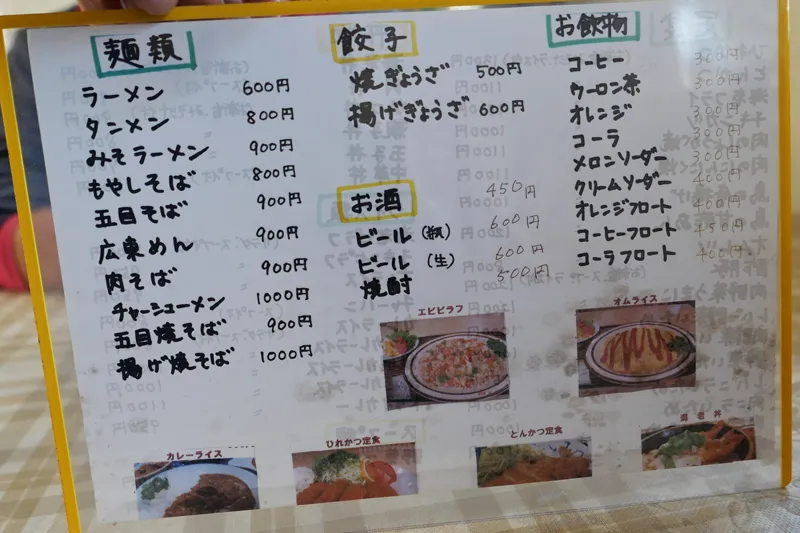 麺類
ラーメン 600円
タンメン 800円
みそラーメン 900円
もやしそば 800円
五目そば 900円
広東めん 900円
肉そば 900円
チャーシューメン 1000円
五目焼そば 900円
揚げ焼そば 1000円
餃子
焼ぎょうざ 500円
揚げぎょうざ 600円
お酒
450円
ビール (瓶) 600円
ビール (生) 600円
焼酎 500円
お飲物
コーヒー 300円
ウーロン茶
オレンジ 300円
コーラ 300円
メロンソーダー 300円
クリームソーダー 400円
オレンジフロート 400円
コーヒーフロート 450円
コーラフロート 400円
エビピラフ
オムライス
カレーライス
ひれかつ定食
とんかつ定食
海老丼